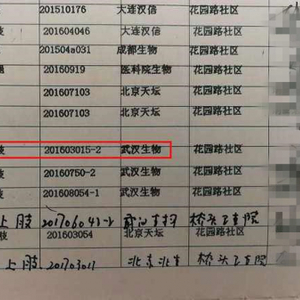 201510176 大连汉信 花园路社区
201604046 大连汉信 花园路社区
201504a031 成都生物 花园路社区
20160919 医科院生物 花园路社区
201607103 北京天坛 花园路社区
201607103 北京天坛 花园路社区
肢 201603015-2 武汉生物 花园路社区
肢 20160750-2 武汉生物 花园路社区
肢 201608054-1 武汉生物 花园路社区
上肢 201706041-2 桥头卫生院
肢 201603054 北京天坛 花园路社区
上肢 北京 桥头卫生院